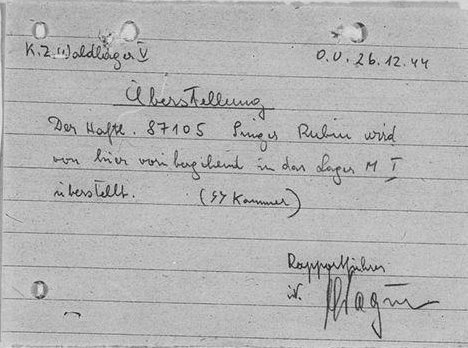 K.Z. Waldlager V O.U. 26.12.44
Überstellung
Der Häftl. 87105 Singer Rubin wird
von hier vorübergehend in das Lager M I
überstellt. (SS Kammer)
Rapportführer
i.V. Wagner